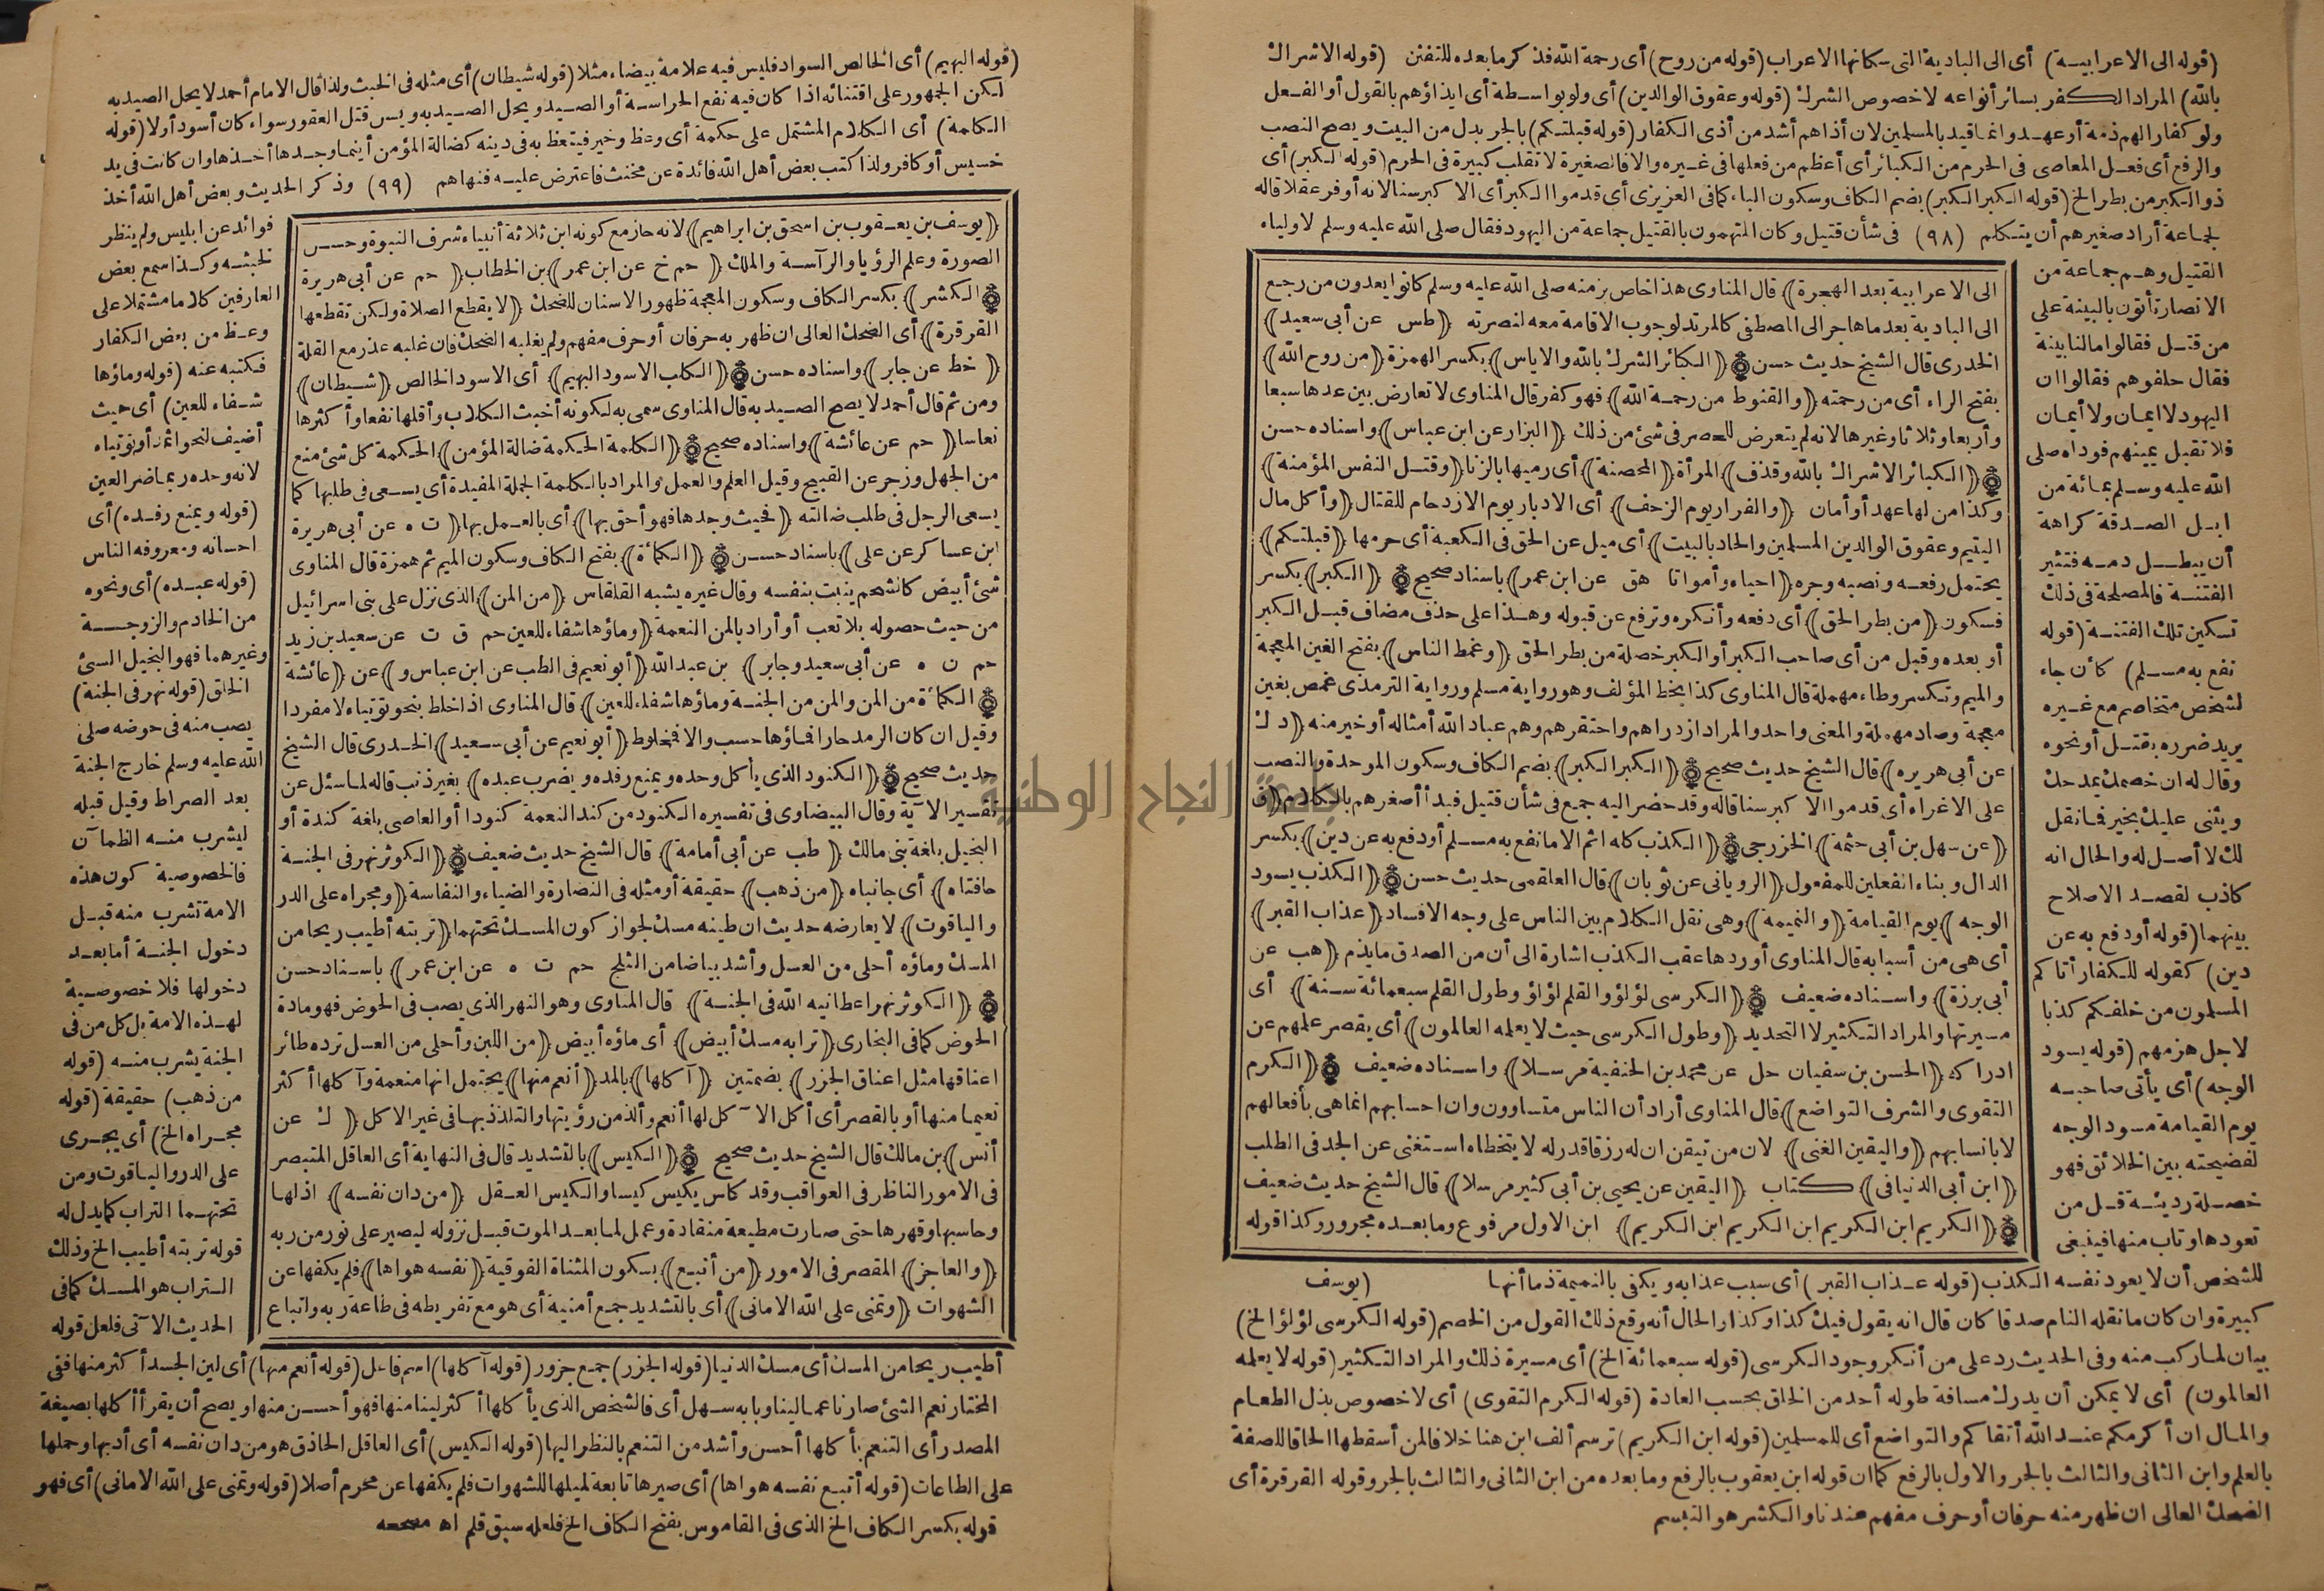 (قوله الى الاعرابية) أى الى البادية التى سكانها الاعراب (قوله من روح) أى رحمة الله فذكر ما بعده للتفنن (قوله الاشراك
بالله) المراد الكفر بسائر أنواعه لا خصوص الشرك (قوله وعقوق الوالدين) أى ولو بواسطة أى ايذاؤهم بالقول أو الفعل
ولو كفارا لهم ذمة أو عهد وانما قيد بالمسلمين لان أذاهم أشد من أذى الكفار (قوله قبلتكم) بالجر بدل من البيت ويصح النصب
والرفع أى فعل المعاصى فى الحرم من الكبائر أى أعظم من فعلها فى غيره والا فالصغيرة لا تقلب كبيرة فى الحرم (قوله الكبر) أى
ذو الكبر من بطر الخ (قوله الكبر الكبر) بضم الكاف وسكون الباء كما فى العزيزى أى قدموا الكبر أى الاكبر سنا لانه أوفر عقلا قاله
لجماعة أراد صغيرهم أن يتكلم (٩٨) فى شأن قتيل وكان المتهمون بالقتيل جماعة من اليهود فقال صلى الله عليه وسلم لاولياء
القتيل وهم جماعة من
الانصار تأتون بالبينة على
من قتل فقالوا ما لنا بينة
فقال حلفوهم فقالوا ان
اليهود لا ايمان ولا أيمان
فلا تقبل يمينهم فوداه صلى
الله عليه وسلم بمائة من
ابل الصدقة كراهة
أن يبطل دمه فتثير
الفتنة فالمصلحة فى ذلك
تسكين تلك الفتنة (قوله
نفع به مسلم) كأن جاء
لشخص متخاصم مع غيره
يريد ضرره بقتل أو نحوه
وقال له ان خصمك يمدحك
ويثنى عليك بخير فما نقل
لك لا أصل له والحال انه
كاذب لقصد الاصلاح
بينهما (قوله أو دفع به عن
دين) كقوله للكفار أتاكم
المسلمون من خلفكم كذبا
لاجل هزمهم (قوله يسود
الوجه) أى يأتى صاحبه
يوم القيامة مسود الوجه
لفضيحته بين الخلائق فهو
خصلة رديئة قل من
تعودها وتاب منها فينبغى
الى الاعرابية بعد الهجرة) قال المناوى هذا خاص بزمنه صلى الله عليه وسلم كانوا يعدون من رجع
الى البادية بعد ما هاجر الى المصطفى كالمرتد لوجوب الاقامة معه لنصرته (طس عن أبى سعيد)
الخدرى قال الشيخ حديث حسن (الكبائر الشرك بالله والاياس) بكسر الهمزة (من روح الله)
بفتح الراء أى من رحمته (والقنوط من رحمة الله) فهو كفر قال المناوى لا تعارض بين عدها سبعا
وأربعا وثلاثا وغيرها لانه لم يتعرض للحصر فى شئ من ذلك (البزار عن ابن عباس) واسناده حسن
(الكبائر الاشراك بالله وقذف) المرأة (المحصنة) أى رميها بالزنا (وقتل النفس المؤمنة)
وكذا من لها عهد أو أمان (والفرار يوم الزحف) أى الادبار يوم الازدحام للقتال (وأكل مال
اليتيم وعقوق الوالدين المسلمين والحاد بالبيت) أى ميل عن الحق فى الكعبة أى حرمها (قبلتكم)
يحتمل رفعه ونصبه وجره (احياء وأمواتا هق عن ابن عمر) باسناد صحيح (الكبر) بكسر
فسكون (من بطر الحق) أى دفعه وأنكره وترفع عن قبوله وهذا على حذف مضاف قبل الكبر
أو بعده وقبل من أى صاحب الكبر أو الكبر خصلة من بطر الحق (وغمط الناس) بفتح الغين المعجمة
والميم وتكسر وطاء مهملة قال المناوى كذا بخط المؤلف وهو رواية مسلم ورواية الترمذى غمص بغين
معجمة وصاد مهملة والمعنى واحد والمراد ازدراهم واحتقرهم وهم عباد الله أمثاله أو خير منه (د ك
عن أبى هريرة) قال الشيخ حديث صحيح (الكبر الكبر) بضم الكاف وسكون الموحدة والنصب
على الاغراء أى قدموا الاكبر سنا قاله وقد حضر اليه جمع فى شأن قتيل فبدأ أصغرهم بالكلام (ق
عن سهل بن أبى حثمة) الخزرجى (الكذب كله اثم الا ما نفع به مسلم أو دفع به عن دين) بكسر
الدال وبناء الفعلين للمفعول (الرويانى عن ثوبان) قال العلقمى حديث حسن (الكذب يسود
الوجه) يوم القيامة (والنميمة) وهى نقل الكلام بين الناس على وجه الافساد (عذاب القبر)
أى هى من أسبابه قال المناوى أوردها عقب الكذب اشارة الى أن من الصدق ما يذم (هب عن
أبى برزة) واسناده ضعيف (الكرسى لؤلؤ والقلم لؤلؤ وطول القلم سبعمائة سنة) أى
مسيرتها والمراد التكثير لا التحديد (وطول الكرسى حيث لا يعلمه العالمون) أى يقصر علمهم عن
ادراكه (الحسن بن سفيان حل عن محمد بن الحنفية مرسلا) واسناده ضعيف (الكرم
التقوى والشرف التواضع) قال المناوى أراد أن الناس متساوون وان احسابهم انما هى بأفعالهم
لا بانسابهم (واليقين الغنى) لان من تيقن ان له رزقا قدر له لا يتخطاه استغنى عن الجد فى الطلب
(ابن أبى الدنيا فى) كتاب (اليقين عن يحيى بن أبى كثير مرسلا) قال الشيخ حديث ضعيف
(الكريم ابن الكريم ابن الكريم ابن الكريم) ابن الاول مرفوع وما بعده مجرور وكذا قوله
للشخص أن لا يعود نفسه الكذب (قوله عذاب القبر) أى سبب عذابه ويكفى بالنميمة ذما أنها (يوسف
كبيرة وان كان ما نقله النام صدقا كان قال انه يقول فيك كذا وكذا والحال أنه وقع ذلك القول من الخصم (قوله الكرسى لؤلؤ الخ)
بيان لما ركب منه وفى الحديث رد على من أنكر وجود الكرسى (قوله سبعمائة الخ) أى مسيرة ذلك والمراد التكثير (قوله لا يعلمه
العالمون) أى لا يمكن أن يدرك مسافة طوله أحد من الخلق بحسب العادة (قوله الكرم التقوى) أى لا خصوص بذل الطعام
والمال ان أكرمكم عند الله أتقاكم والتواضع أى للمسلمين (قوله ابن الكريم) ترسم ألف ابن هنا خلافا لمن أسقطها الحاقا للصفة
بالعلم وابن الثانى والثالث بالجر والاول بالرفع كما ان قوله ابن يعقوب بالرفع وما بعده من ابن الثانى والثالث بالجر وقوله القرقرة أى
الضحك العالى ان ظهر منه حرفان أو حرف مفهم عندنا والكشر هو التبسم
(قوله البهيم) أى الخالص السواد فليس فيه علامة بيضاء مثلا (قوله شيطان) أى مثله فى الخبث ولذا قال الامام أحمد لا يحل الصيد به
لكن الجمهور على اقتنائه اذا كان فيه نفع الحراسة أو الصيد ويحل الصيد به ويسن قتل العقور سواء كان أسود أو لا (قوله
الكلمة) أى الكلام المشتمل على حكمة أى وعظ وخير فيتعظ به فى دينه كضالة المؤمن أينما وجدها أخذها وان كانت فى يد
خسيس أو كافر ولذا اكتب بعض أهل الله فائدة عن مخنث فاعترض عليه فنهاهم (٩٩) وذكر الحديث وبعض أهل الله أخذ
فوائد عن ابليس ولم ينظر
لخبثه وكذا سمع بعض
العارفين كلاما مشتملا على
وعظ من بعض الكفار
فكتبه عنه (قوله وماؤها
شفاء للعين) أى حيث
أضيف لنحو اثمد أو توتياء
لانه وحده ربما ضر العين
(قوله ويمنع رفده) أى
احسانه ومعروفه الناس
(قوله عبده) أى ونحوه
من الخادم والزوجة
وغيرهما فهو البخيل السئ
الخلق (قوله نهر فى الجنة)
يصب منه فى حوضه صلى
الله عليه وسلم خارج الجنة
بعد الصراط وقيل قبله
ليشرب منه الظمآن
فالخصوصية كون هذه
الامة تشرب منه قبل
دخول الجنة أما بعد
دخولها فلا خصوصية
لهذه الامة بل كل من فى
الجنة يشرب منه (قوله
من ذهب) حقيقة (قوله
مجراه الخ) أى يجرى
على الدر والياقوت ومن
تحتهما التراب كما يدل له
قوله تربته أطيب الخ وذلك
التراب هو المسك كما فى
الحديث الآتى فلعل قوله
(يوسف بن يعقوب بن اسحق بن ابراهيم) لانه حاز مع كونه ابن ثلاثة أنبياء شرف النبوة وحسن
الصورة وعلم الرؤيا والرآسة والملك (حم خ عن ابن عمر) بن الخطاب (حم عن أبى هريرة
(الكشر) بكسر الكاف وسكون المعجمة ظهور الاسنان للضحك (لا يقطع الصلاة ولكن تقطعها
القرقرة) أى الضحك العالى ان ظهر به حرفان أو حرف مفهم ولم يغلبه الضحك فان غلبه عذر مع القلة
(خط عن جابر) واسناده حسن (الكلب الاسود البهيم) أى الاسود الخالص (شيطان)
ومن ثم قال أحمد لا يصح الصيد به قال المناوى سمى به لكونه أخبث الكلاب وأقلها نفعا وأكثرها
نعاسا (حم عن عائشة) واسناده صحيح (الكلمة الحكمة ضالة المؤمن) الحكمة كل شئ منع
من الجهل وزجر عن القبيح وقيل العلم والعمل والمراد بالكلمة الجملة المفيدة أى يسعى فى طلبها كما
يسعى الرجل فى طلب ضالته (فحيث وجدها فهو أحق بها) أى بالعمل بها (ت ه عن أبى هريرة
ابن عساكر عن على) باسناد حسن (الكمأة) بفتح الكاف وسكون الميم ثم همزة قال المناوى
شئ أبيض كالشحم ينبت بنفسه وقال غيره يشبه القلقاس (من المن) الذى نزل على بنى اسرائيل
من حيث حصوله بلا تعب أو أراد بالمن النعمة (وماؤها شفاء للعين حم ق ت عن سعيد بن زيد
حم ن ه عن أبى سعيد وجابر) بن عبد الله (أبو نعيم فى الطب عن ابن عباس و) عن (عائشة
الكمأة من المن والمن من الجنة وماؤها شفاء للعين) قال المناوى اذا خلط بنحو توتياء لا مفردا
وقيل ان كان الرمد حارا فماؤها حسب والا فمخلوط (أبو نعيم عن أبى سعيد) الخدرى قال الشيخ
حديث صحيح (الكنود الذى يأكل وحده ويمنع رفده ويضرب عبده) بغير ذنب قاله لما سئل عن
تفسير الآية وقال البيضاوى فى تفسيره الكنود من كند النعمة كنودا أو العاصى بلغة كندة أو
البخيل بلغة بنى مالك (طب عن أبى أمامة) قال الشيخ حديث ضعيف (الكوثر نهر فى الجنة
حافتاه) أى جانباه (من ذهب) حقيقة أو مثله فى النضارة والضياء والنفاسة (ومجراه على الدر
والياقوت) لا يعارضه حديث ان طينه مسك لجواز كون المسك تحتهما (تربته أطيب ريحا من
المسك وماؤه أحلى من العسل وأشد بياضا من الثلج حم ت ه عن ابن عمر) باسناد حسن
(الكوثر نهر اعطانيه الله فى الجنة) قال المناوى وهو النهر الذى يصب فى الحوض فهو مادة
الحوض كما فى البخارى (ترابه مسك أبيض) أى ماؤه أبيض (من اللبن وأحلى من العسل ترده طائر
اعناقها مثل اعناق الجزر) بضمتين (آكلها) بالمد (أنعم منها) يحتمل انها منعمة وآكلها أكثر
نعيما منها أو بالقصر أى أكل الآكل لها أنعم وألذ من رؤيتها والتلذذ بها فى غير الاكل (ك عن
أنس) بن مالك قال الشيخ حديث صحيح (الكيس) بالتشديد قال فى النهاية أى العاقل المتبصر
فى الامور الناظر فى العواقب وقد كاس يكيس كيسا والكيس العقل (من دان نفسه) اذلها
وحاسبها وقهرها حتى صارت مطيعة منقادة وعمل لما بعد الموت قبل نزوله ليصير على نور من ربه
(والعاجز) المقصر فى الامور (من أتبع) بسكون المثناة الفوقية (نفسه هواها) فلم يكفها عن
الشهوات (وتمنى على الله الامانى) أى بالتشديد جمع أمنية أى هو مع تفريطه فى طاعة ربه واتباع
أطيب ريحا من المسك أى مسك الدنيا (قوله الجزر) جمع جزور (قوله آكلها) اسم فاعل (قوله أنعم منها) أى لين الجسد أكثر منها ففى
المختار نعم الشئ صار ناعما لينا وبابه سهل أى فالشخص الذى يأكلها أكثر لينا منها فهو أحسن منها ويصح أن يقرأ أكلها بصيغة
المصدر أى التنعم بأكلها أحسن وأشد من التنعم بالنظر اليها (قوله الكيس) أى العاقل الحاذق هو من دان نفسه أى أدبها وحملها
على الطاعات (قوله أتبع نفسه هواها) أى صيرها تابعة لميلها للشهوات فلم يكفها عن محرم أصلا (قوله وتمنى على الله الامانى) أى فهو
قوله بكسر الكاف الخ الذى فى القاموس بفتح الكاف الخ فلعله سبق قلم اه مصححه
جامعة النجاح الوطنية